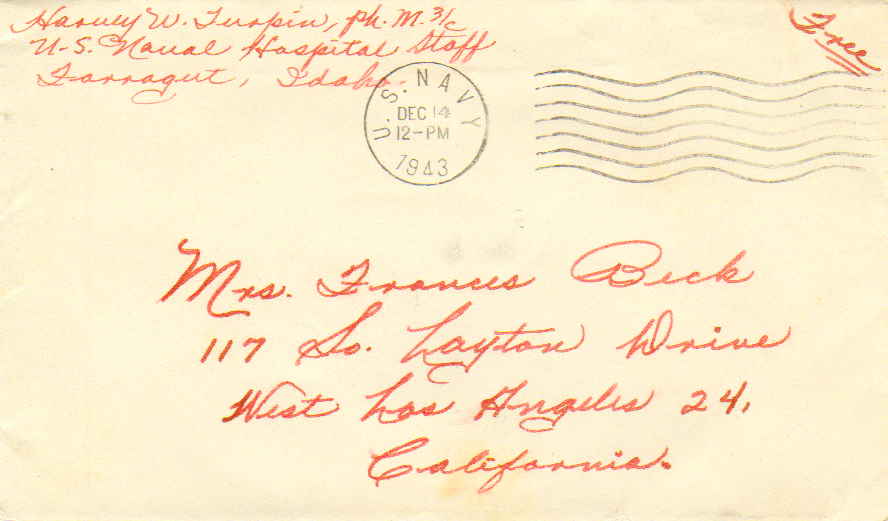 Harvey W. Turpin, ph. M. 3/c
U-S. Naval Hospital Staff
Farragut, Idaho.
Free
U. S. NAVY
DEC 14
12-PM
1943
Mrs. Frances Beck
117 So. Layton Drive
West Los Angeles 24,
California.